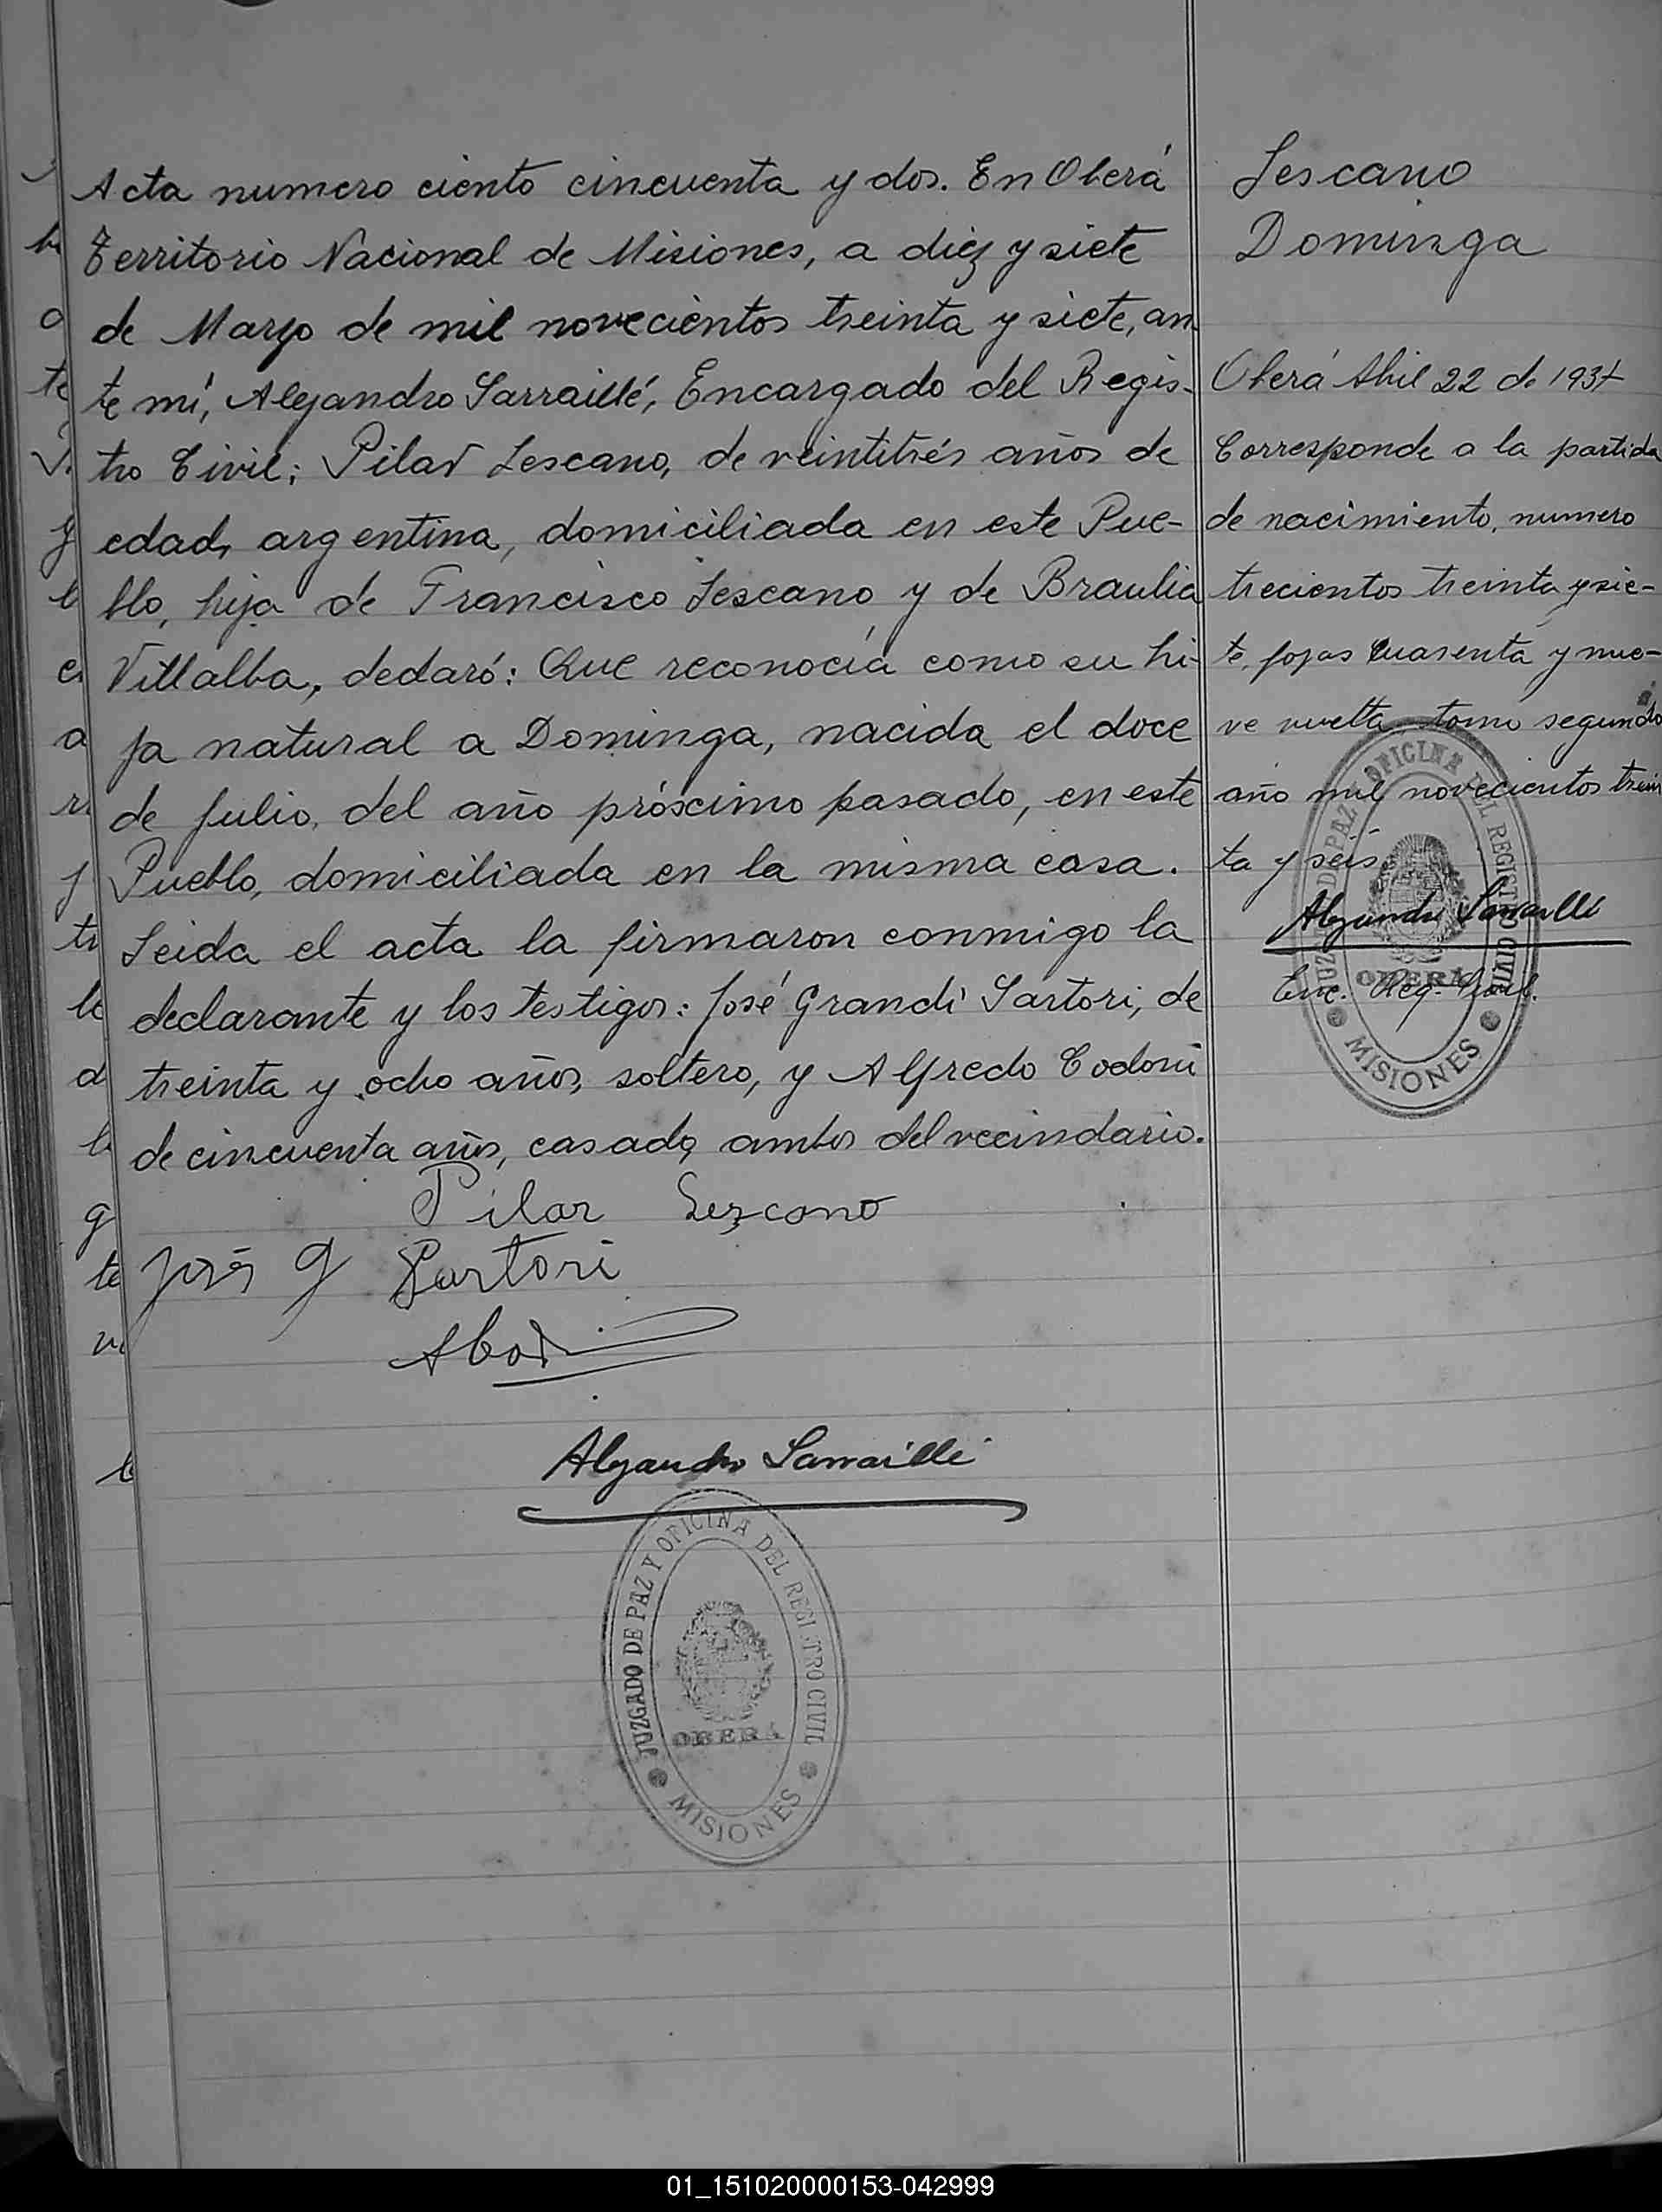 Acta numero ciento cincuenta y dos. En Oberá
Territorio Nacional de Misiones, a diez y siete
de Marzo de mil novecientos treinta y siete, an-
te mí, Alejandro Sarraillé, Encargado del Regis-
tro Civil; Pilar Lescano, de veintitrés años de
edad, argentina, domiciliada en este Pue-
blo, hija de Francisco Lescano y de Braulia
Villalba, declaró: Que reconocía como su hi-
ja natural a Dominga, nacida el doce
de Julio, del año próscimo pasado, en este
Pueblo, domiciliada en la misma casa.
Leida el acta la firmaron conmigo la
declarante y los testigos: José Grandi Sartori, de
treinta y ocho años, soltero, y Alfredo Codoni
de cincuenta años, casado, ambos del vecindario.
Pilar Lezcano
José G Sartori
Alejandro Sarraillé
JUZGADO DE PAZ Y OFICINA DEL REGISTRO CIVIL
OBERA
MISIONES
Lescano
Dominga
Oberá Abil 22 de 1937
Corresponde a la partida
de nacimiento, numero
trecientos treinta y sie-
te, fojas cuarenta y nue-
ve vuelta, tomo segundo
año mil novecientos trein
ta y seis
Alejandro Sarraillé
Enc. Reg. Civil.
JUZGADO DE PAZ Y OFICINA DEL REGISTRO CIVIL
OBERA
MISIONES
01_151020000153-042999